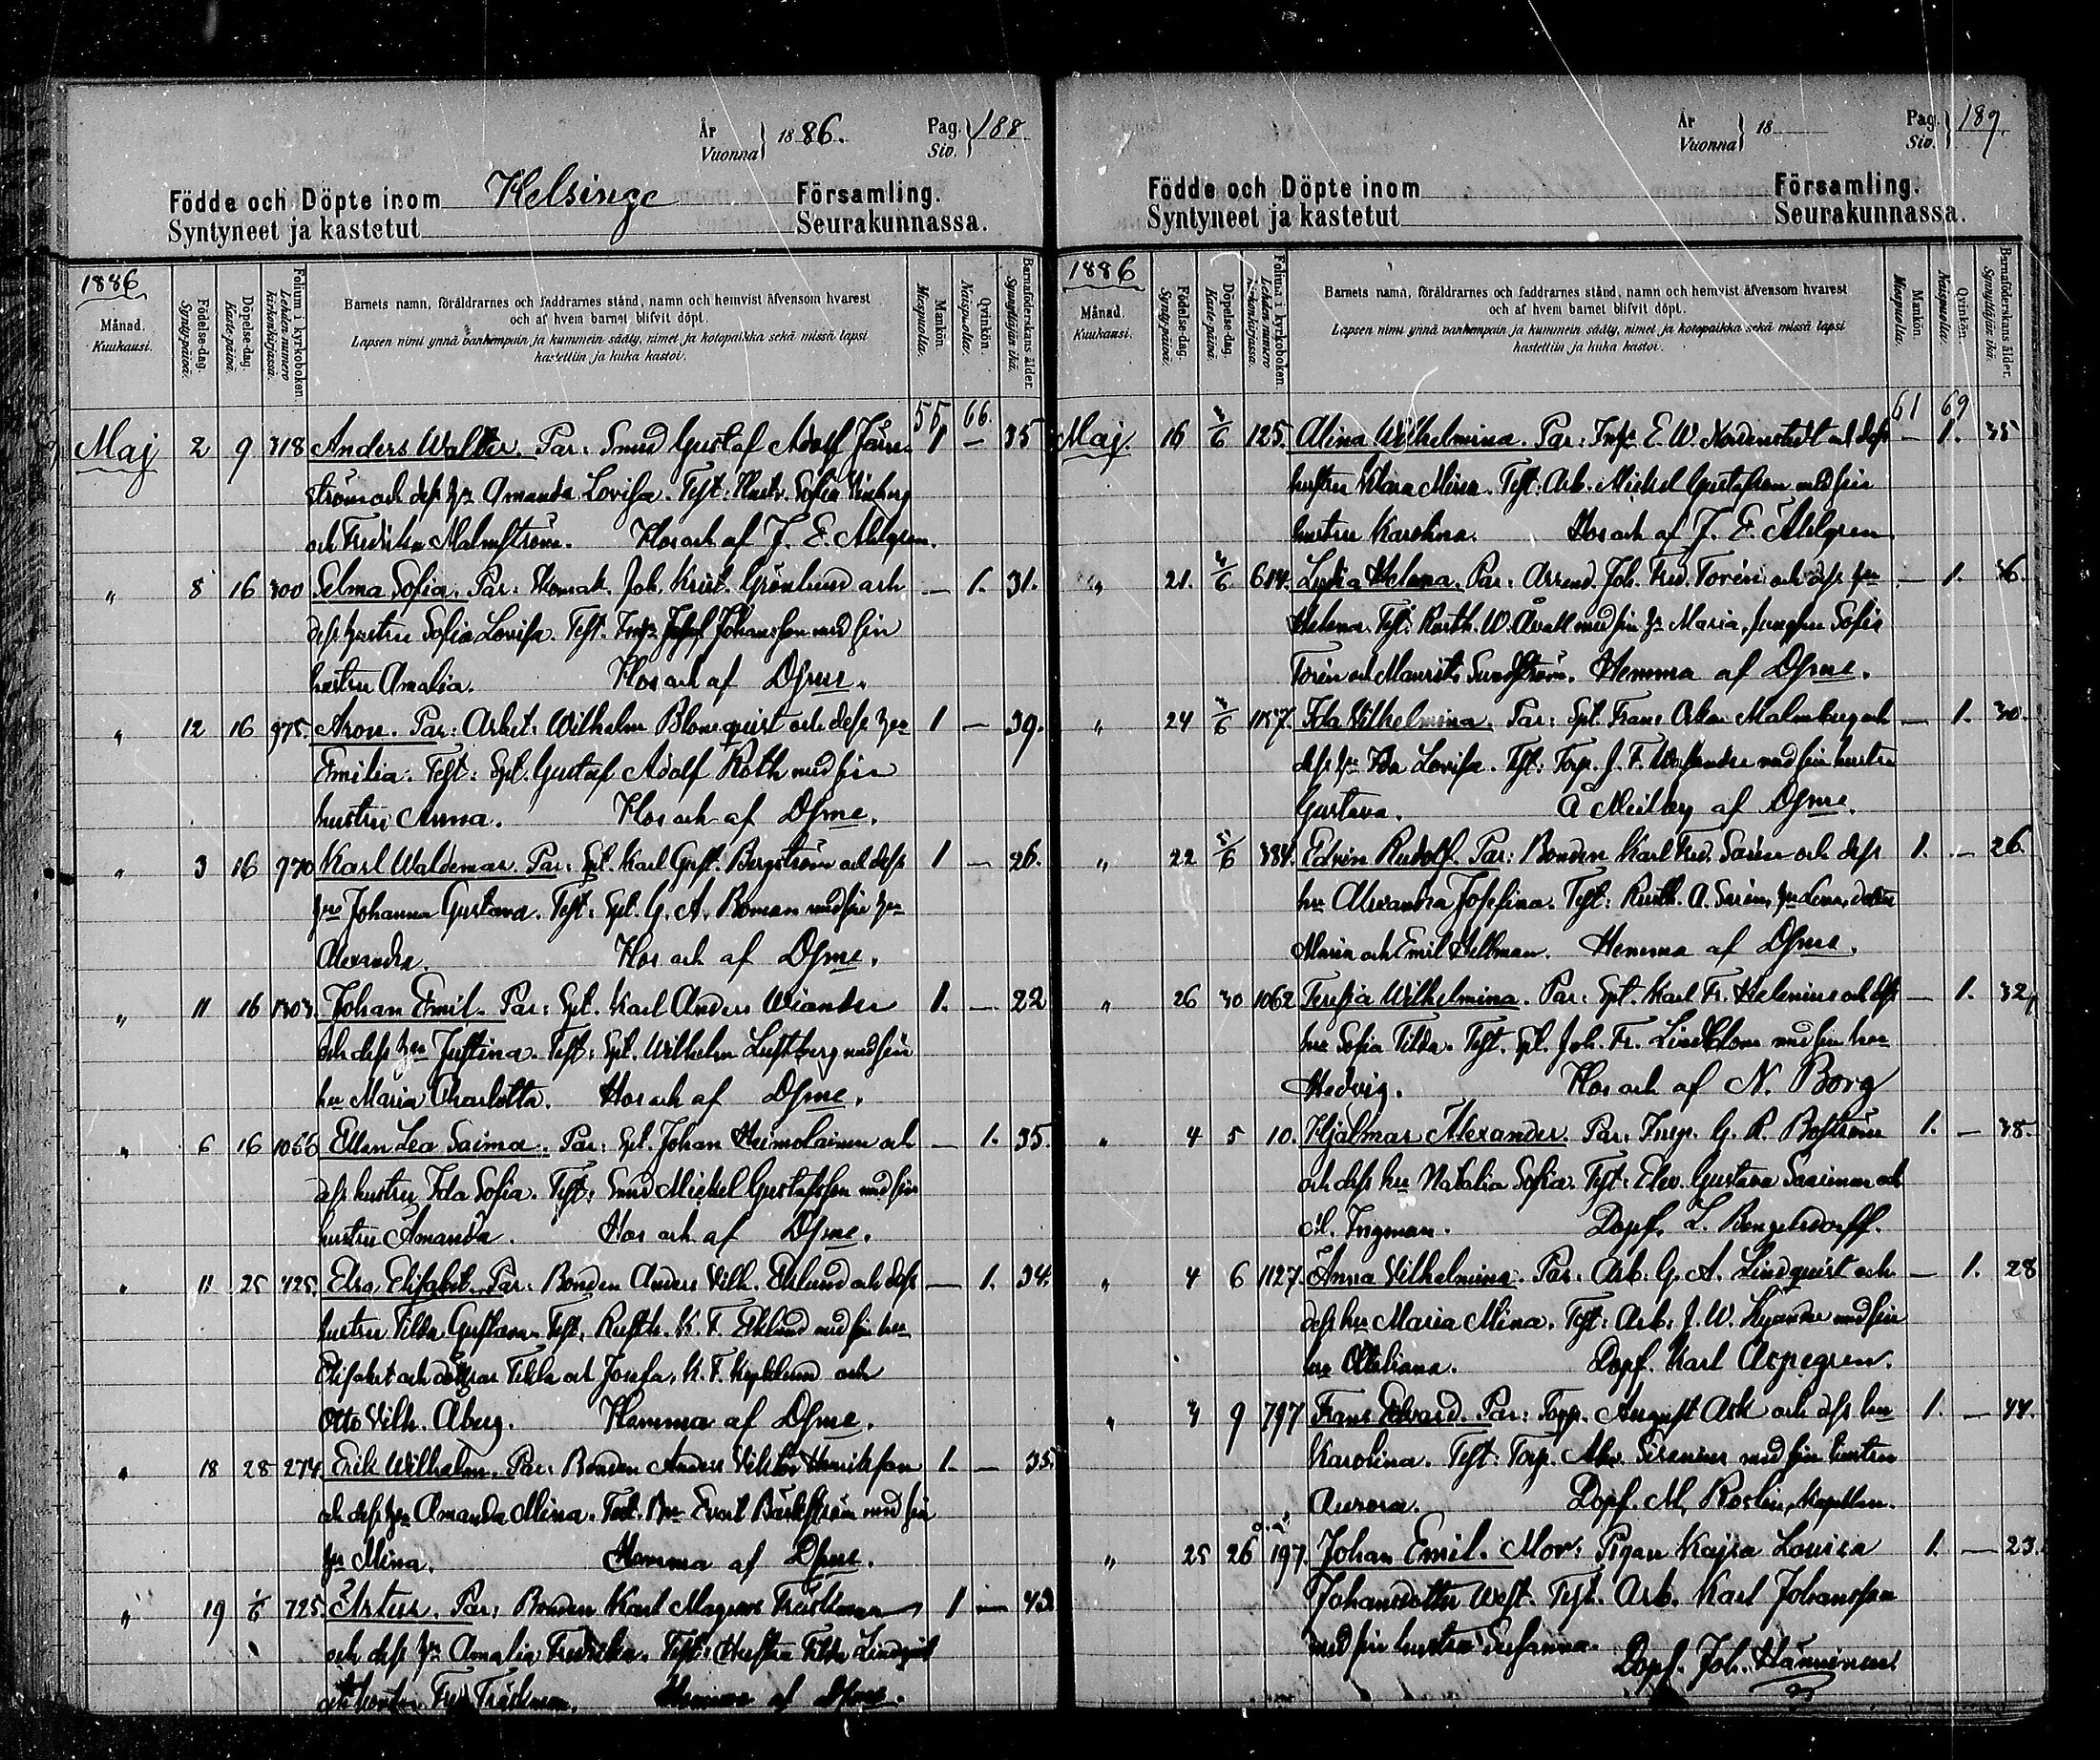 År
Vuonna } 1886. Pag. Siv. } 188
Födde och Döpte inom Helsinge Församling.
Syntyneet ja kastetut Seurakunnassa.
1886
Månad. Kuukausi.
Födelse-dag. Synty-päivä.
Döpelse-dag. Kaste-päivä.
Folium i kyrkoboken. Lehden numero kirkonkirjassa.
Barnets namn, föräldrarnes och faddrarnes stånd, namn och hemvist äfvensom hvarest
och af hvem barnet blifvit döpt.
Lapsen nimi ynnä vanhempain ja kummein sääty, nimet ja kotopaikka sekä missä lapsi
kastettiin ja kuka kastoi.
Mankön. Miespuolia.
Qvinkön. Naispuolia.
Barnaföderskans ålder. Synnyttäjän ikä.
55 66.
Maj 2 9 318 Anders Walter. Par: Smed Gustaf Adolf Järn- 1 — 35
ström och dess hu Amanda Lovisa. Test: Hustr. Sofia
och Fredrika Malmström. Hos och af J. E. Ahlgren.
" 8 16 300 Selma Sofia. Par: Skomak. Joh. Krist. Grönlund och — 1. 31.
dess hustru Sofia Lovisa. Test. Johansson med sin
hustru Amalia. Hos och af Dsme.
" 12 16 975. Aron. Par: Arbet. Wilhelm Blomquist och dess hu 1 — 39.
Emilia. Test: Spt. Gustaf Adolf Roth med sin
hustru Anna. Hos och af Dsme.
" 3 16 970 Karl Waldemar. Par: Spt. Karl Gust. Bergström och dess 1 — 26.
hu Johanna Gustava. Test: Spt. G. A. Boman med sin hu
Alexandra. Hos och af Dsme.
" 11 16 1303. Johan Emil. Par: Spt. Karl Anders Wiander 1. — 22
och dess hu Justina. Test: Spt. Wilhelm Luftberg med sin
hu Maria Charlotta. Hos och af Dsme.
" 6 16 1066 Ellen Lea Saima. Par: Spt. Johan Heimolainen och — 1. 35.
dess hustru Ida Sofia. Test: Smed Mickel Gustafsson med sin
hustru Amanda. Hos och af Dsme.
" 11 25 425. Elsa Elisabet. Par: Bonden Anders Vilh. Eklund och dess — 1. 34.
hustru Tilda Gustava. Test. Rusth. K. F. Eklund med sin hu
Elisabet och döttrar Tekla och Josefa, K. F. och
Otto Vilh. Åberg. Hemma af Dsme.
" 18 28 274. Erik Wilhelm. Par: Bonden Anders Viktor Henriksson 1. — 35.
och dess hu Amanda Mina. Test. Evert Bäckström med sin
hu Mina. Hemma af Dsme.
" 19 1/6 725 Artur. Par: Bonden Karl Magnus Träskman 1 — 43
och dess hu Amalia Fredrika. Test: Hustru Tilda Lindqvist
och Fred. Träskman. Hemma af Dsme.
År
Vuonna } 18 Pag. Siv. } 189.
Födde och Döpte inom Församling.
Syntyneet ja kastetut Seurakunnassa.
1886
Månad. Kuukausi.
Födelse-dag. Synty-päivä.
Döpelse-dag. Kaste-päivä.
Folium i kyrkoboken. Lehden numero kirkonkirjassa.
Barnets namn, föräldrarnes och faddrarnes stånd, namn och hemvist äfvensom hvarest
och af hvem barnet blifvit döpt.
Lapsen nimi ynnä vanhempain ja kummein sääty, nimet ja kotopaikka sekä missä lapsi
kastettiin ja kuka kastoi.
Mankön. Miespuolia.
Qvinkön. Naispuolia.
Barnaföderskans ålder. Synnyttäjän ikä.
61 69
Maj. 16 125. Alina Wilhelmina. Par: E. W. Nordenstedt och dess — 1. 35
hustru Mina. Test: Arb. Mickel Gustafsson med sin
hustru Karolina. Hos och af J. E. Ahlgren
" 21. 614. Lydia Helena. Par: Arrend. Joh. Fred. Torén och dess hu — 1. 36.
Helena. Test: Rusth. W. Åvall med sin hu Maria, jungfru Sofia
Torén och Maurits Sundström. Hemma af Dsme.
" 24 1157. Ida Vilhelmina. Par: Spt. Frans Oskar Malmberg och — 1. 30.
dess hu Ida Lovisa. Test: Torp. J. F. med sin hustru
Gustava. Å Meilby af Dsme.
" 22 384. Edvin Rudolf. Par: Bonden Karl Fred. Sarén och dess 1. — 26.
hu Alexandra Josefina. Test: Rusth. A. Sarén, hu Lena, dotter
Maria och Emil Hellman. Hemma af Dsme.
" 26 30 1062 Teresia Wilhelmina. Par: Spt. Karl Fr. Helenius och dess — 1. 32
hu Sofia Tilda. Test. Spt. Joh. Fr. Lindblom med sin hu
Hedvig. Hos och af N. Borg
" 4 5 10. Hjalmar Alexander. Par: G. R. Boström 1. — 38.
och dess hu Natalia Sofia. Test: Elev. Gustava Saarinen och
Ingman. Döpf. L. Bengelsdorff.
" 4 6 1127. Anna Vilhelmina. Par: Arb. G. A. Lindquist och — 1. 28
dess hu Maria Mina. Test: Arb. J. W. Kyander med sin
hu Ottiliana. Döpf. Karl Aspegren.
" 3 9 797 Frans Edvard. Par: Torp. August Ask och dess hu 1. — 44.
Karolina. Test: Torp. Alex. Sirenius med sin hustru
Aurora. Döpf. M. Roslin, Kapellan.
" 25 26 197. Johan Emil. Mor: Pigan Kajsa Lovisa 1. — 23.
Johansdotter West. Test. Arb. Karl Johansson
med sin hustru Susanna. Döpf. Joh. Hänninen